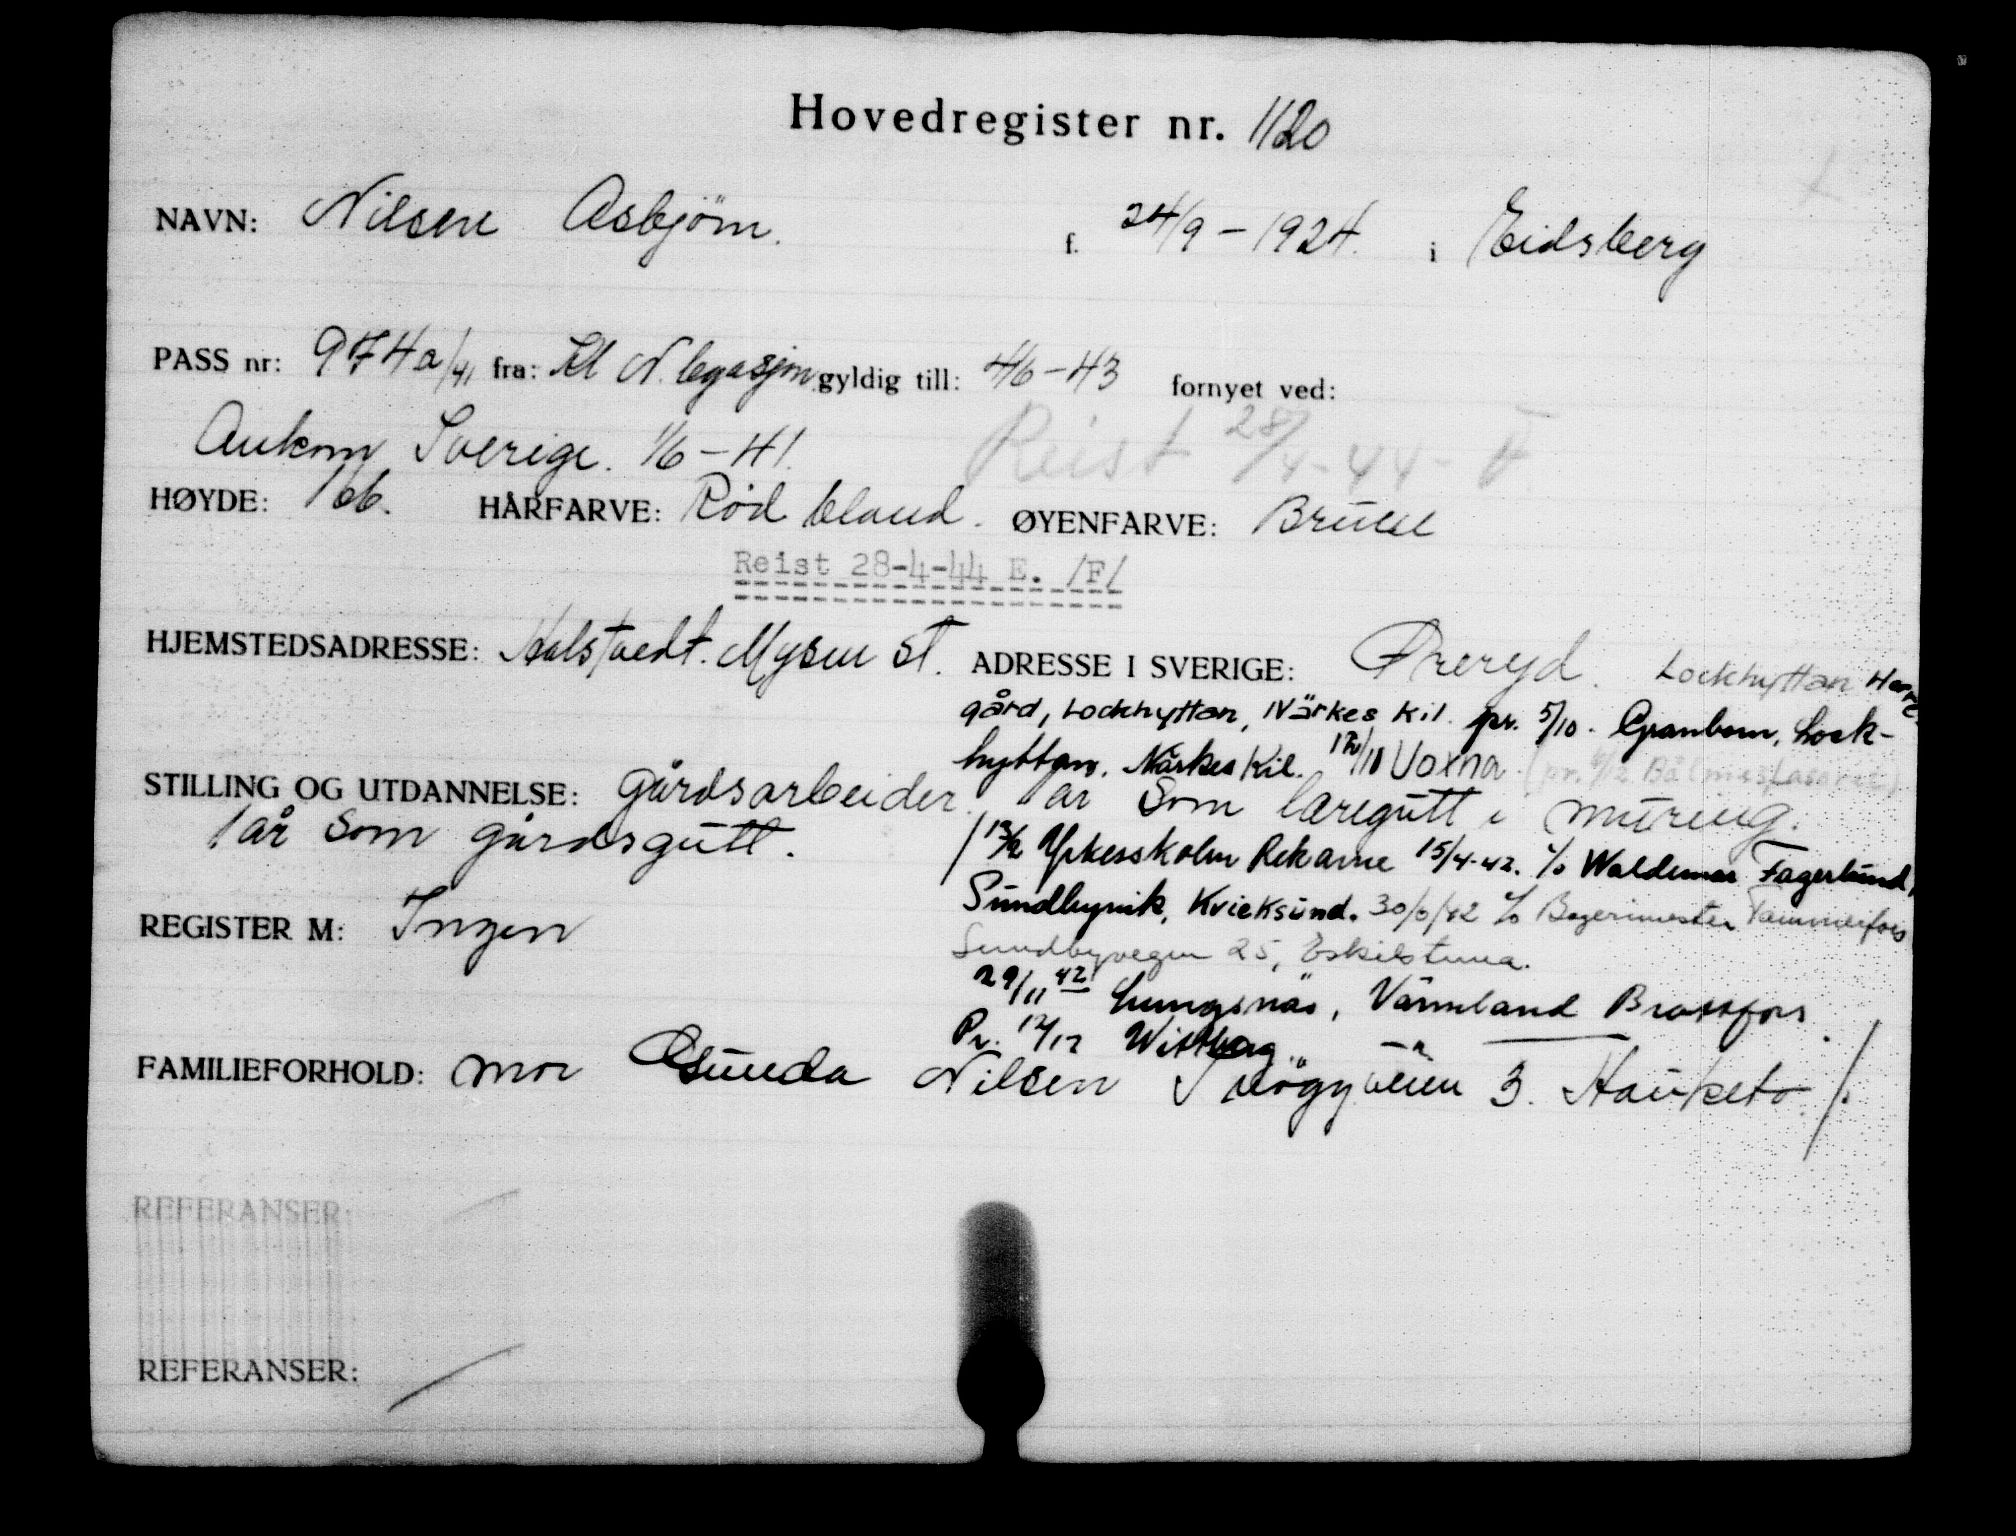 Hovedregister nr. 1120
NAVN: Nilsen Asbjörn. f. 24/9 - 1924. i Eidsberg
PASS nr: 974a/41 fra: Kl N. legasjon gyldig till: 4/6-43 fornyet ved:
Ankom Sverige. 1/6-41. Reist 28/4-44-
HØYDE: 166. HÅRFARVE: Rød bland. ØYENFARVE: Brune
Reist 28-4-44 E. /F/
HJEMSTEDSADRESSE: Mysen St. ADRESSE I SVERIGE: Øreryd. Lockhyttan Herre-
gård, Lockhyttan, Närkes Kil. pr. 5/10. Granbom, Lock-
hyttan. Närkes Kil. Voxna. (pr.
STILLING OG UTDANNELSE: gårdsarbeider. 1 år som læregutt i muring.
1 år som gårdsgutt.
/ 13/2 Yrkesskolen Rekarne 15/4-42. c/o Waldemar Fagerlund,
Sundbyvik, Kvicksund. 30/6/42 c/o Bagerimester Tammerfors
REGISTER M: Ingen
Sundbyvegen 25, Eskilstuna.
29/11 42 Lungsnäs, Värmland Brattfors.
Pr. 12/12 Wittberg
FAMILIEFORHOLD: mor Gunda Nilsen 3. Hauketo /.
REFERANSER:
REFERANSER: